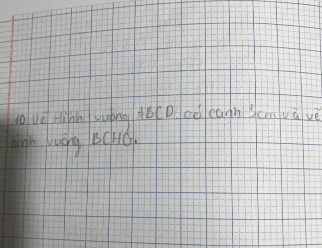 10 Vẽ Hình vuông ABCD có cạnh cm và vẽ
hình vuông BCHG.